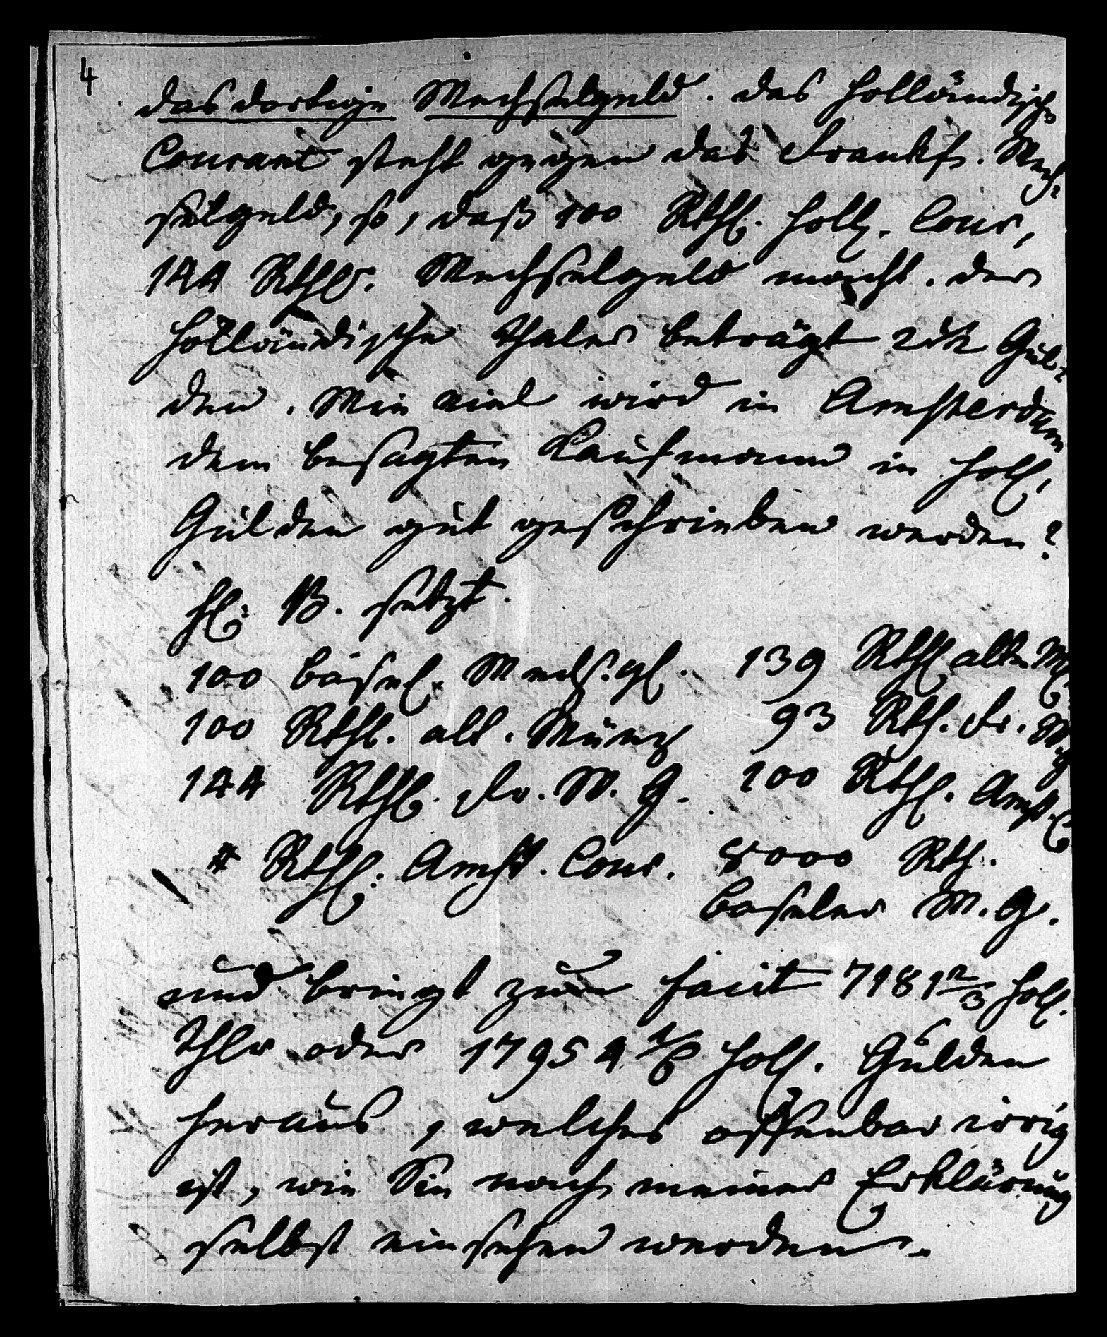 4
das dortige Wechselgeld. das Holländische
Courant steht gegen das Frankf. Wech-
selgeld, so, daß 100 Rthl. Holl. Cour,
144 Rthlr. Wechselgeld macht. der
Holländische Thaler beträgt 2 1/2 Gul-
den. Wie viel wird in Amsterdam
dem besagten Kaufmann in Holl.
Gulden gut geschrieben werden?
H. B. setzt.
100 basel. Wechs. gl. 139 Rthl alte Mz
100 Rthl. alt. Münz 93 Rth. Fr. W g
144 Rthl. Fr. W. G. 100 Rthl. Amst. C
* Rthl. Amst. Cour. 8000 Rth.
baseler W. G.
und bringt zum facit 7181 2/3 Holl.
Thlr oder 17954 1/6 Holl. Gulden
heraus, welches offenbar irrig
ist, wie Sie nach meiner Erklärung
selbst einsehen werden.